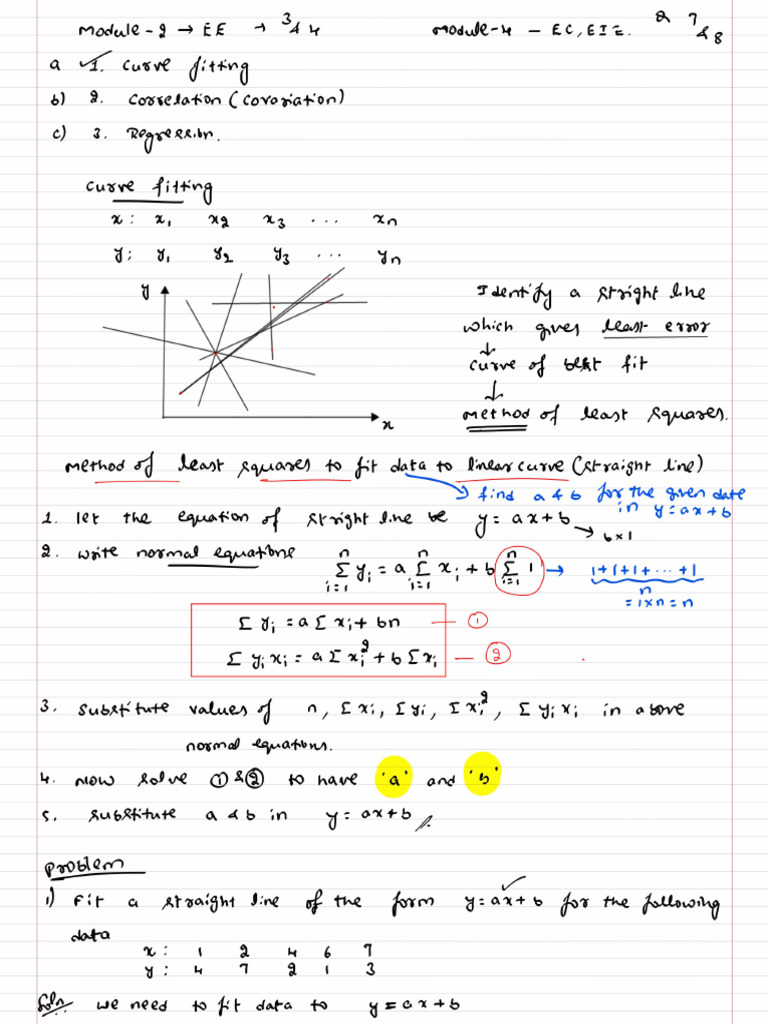 Module-2 → EE → 3 & 4 Module-4 - EC, EIE. Q 7 & 8
a ✓ 1. Curve fitting
b) 2. Correlation (Covariation)
c) 3. Regression.
Curve fitting
x : x₁ x₂ x₃ ... xₙ
y : y₁ y₂ y₃ ... yₙ
y
x
Identify a straight line
which gives least error
↓
curve of best fit
↓
method of least squares.
Method of least squares to fit data to linear curve (straight line)
→ find a & b for the given data in y = ax+b
1. let the equation of straight line be y = ax+b → b×1
2. write normal equations
n∑i=1 yᵢ = a n∑i=1 xᵢ + b n∑i=1 1 → 1+1+1+...+1
n
= 1×n = n
∑ yᵢ = a∑xᵢ + bn — ①
∑ yᵢxᵢ = a∑xᵢ² + b∑xᵢ — ②
3. substitute values of n, ∑xᵢ, ∑yᵢ, ∑xᵢ², ∑yᵢxᵢ in above
normal equations.
4. Now solve ① & ② to have 'a' and 'b'
5. substitute a & b in y = ax+b //
Problem
1) Fit a straight line of the form y = ax+b ✓ for the following
data
x : 1 2 4 6 7
y : 4 7 2 1 3
Soln we need to fit data to y = ax+b